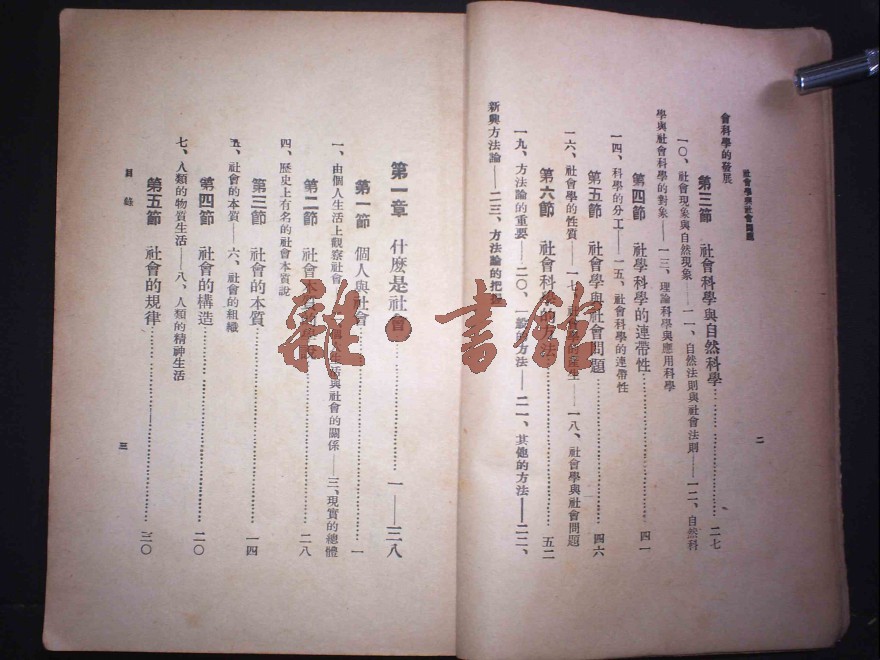 社會學與社會問題
二
會科學的發展
第三節 社會科學與自然科學……二七
一〇、社會現象與自然現象——一一、自然法則與社會法則——一二、自然科
學與社會科學的對象——一三、理論科學與應用科學
第四節 社學科學的連帶性……四一
一四、科學的分工——一五、社會科學的連帶性
第五節 社會學與社會問題……四六
一六、社會學的性質——一七、社會學的產生——一八、社會學與社會問題
第六節 社會科學的方法……五二
一九、方法論的重要——二〇、一般的方法——二一、其他的方法——二二、
新興方法論——二三、方法論的把握
第一章 什麼是社會……一——三八
第一節 個人與社會……一
一、由個人生活上觀察社會——二、個人生活與社會的關係——三、現實的總體
第二節 社會本質的學說……二八
四、歷史上有名的社會本質說
第三節 社會的本質……一四
五、社會的本質——六、社會的組織
第四節 社會的構造……二〇
七、人類的物質生活——八、人類的精神生活
第五節 社會的規律……三〇
目錄
三
雜·書館